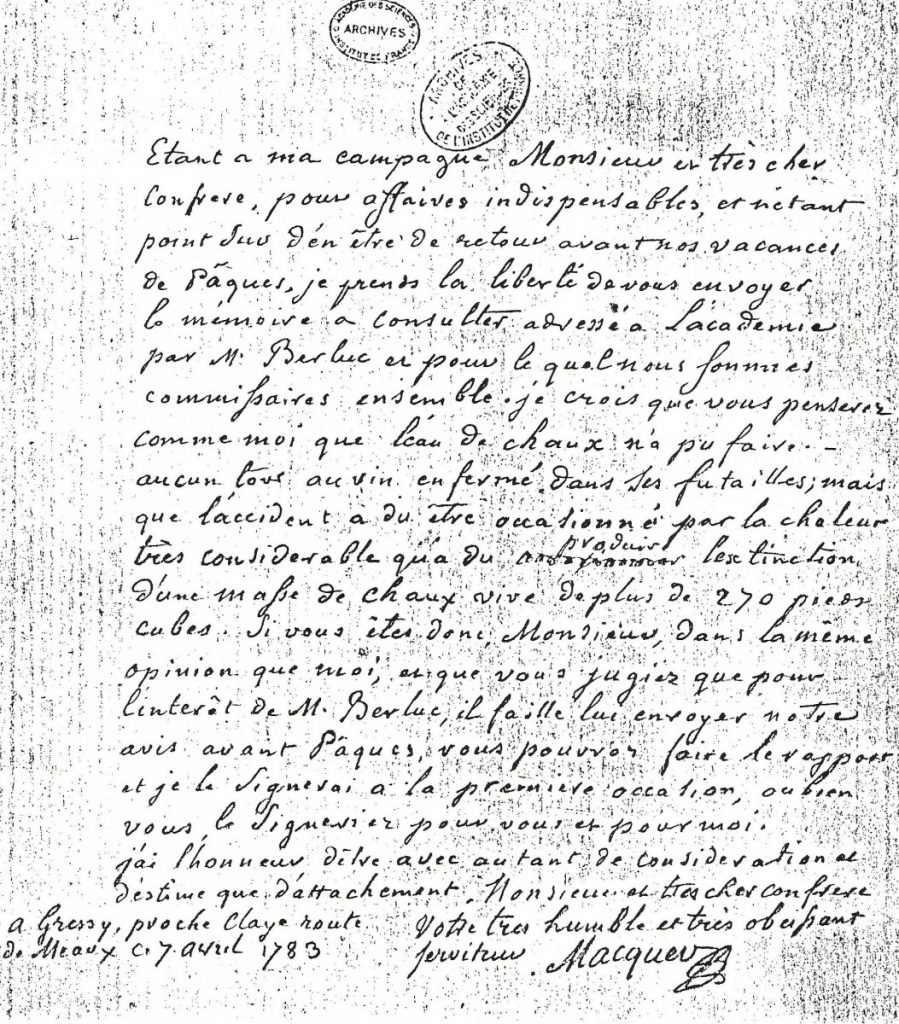 ACADÉMIE DES SCIENCES
ARCHIVES
INSTITUT DE FRANCE
ARCHIVES
DE
L'ACADÉMIE
DES SCIENCES
DE L'INSTITUT DE FRANCE
Etant a ma campagne Monsieur et très cher
Confrere, pour affaires indispensables, et n'étant
point sur d'en être de retour avant nos vacances
de Pâques, je prends la liberté de vous envoyer
le mémoire a consulter adressé a l'académie
par M. Berluc et pour le quel nous sommes
commissaires ensemble. je crois que vous penserez
comme moi que l'eau de chaux n'a pu faire
aucun tort au vin enfermé dans ses futailles; mais
que l'accident a du être occasionné par la chaleur
très considerable qu'a du produire l'extinction
d'une masse de chaux vive de plus de 270 pieds
cubes. Si vous êtes donc, Monsieur, dans la même
opinion que moi, et que vous jugiez que pour
l'interêt de M. Berluc, il faille lui envoyer notre
avis avant Pâques, vous pouvez faire le rapport
et je le signerai a la premiere occasion, ou bien
vous le signeriez pour vous et pour moi.
j'ai l'honneur d'être avec autant de consideration et
d'estime que d'attachement, Monsieur et tres cher confrere
a Gressy, proche Claye route
de Meaux c. 7 avril 1783
Votre tres humble et très obeissant
serviteur Macquer